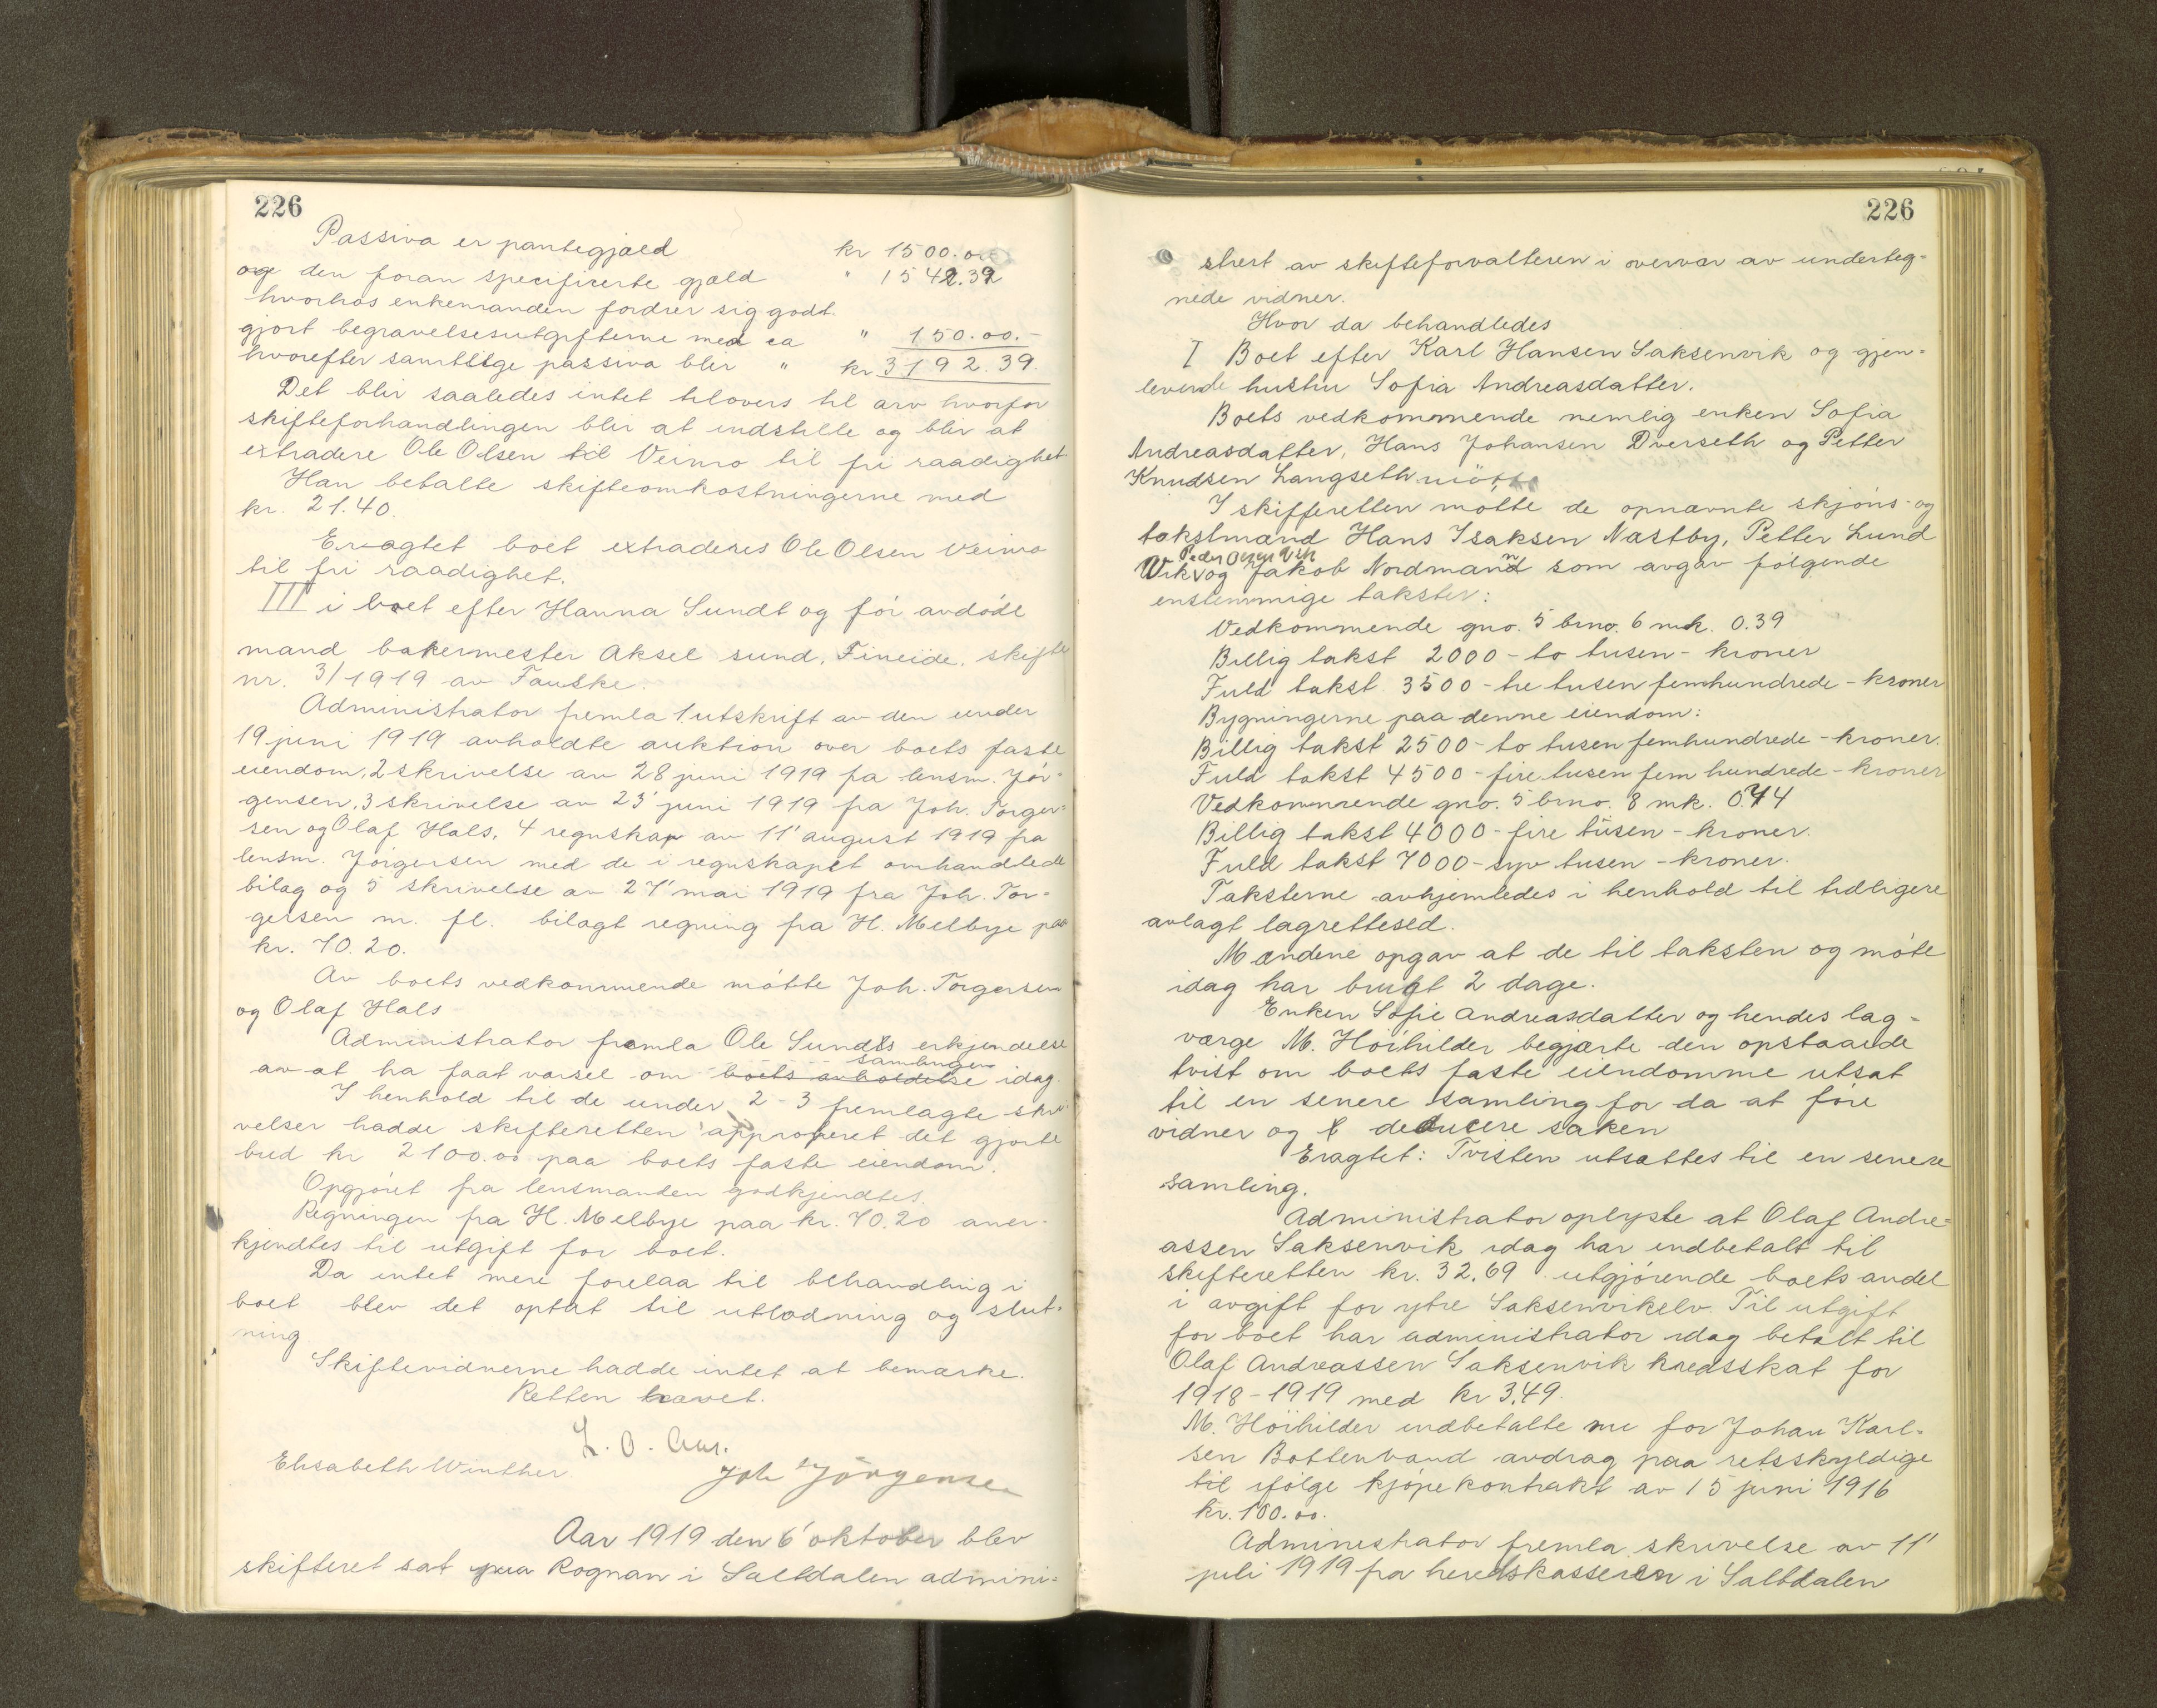 226
Passiva er pantegjæld kr 1500.00
og den foran specificerte gjæld " 1542.39
hvorhos enkemanden fordrer sig godt-
gjort begravelsesutgifterne med ca " 150.00.-
hvorefter samtlige passiva blir " kr 3192.39.
Det blir saaledes intet tilovers til arv hvorfor
skifteforhandlingen blir at indstille og blir at
extradere Ole Olsen til Veimo til fri raadighet
Han betalte skifteomkostningerne med
kr. 21.40.
Eragtet boet extraderes Ole Olsen Veimo
til fri raadighet.
III i boet efter Hanna Sundt og før avdøde
mand bakermester Aksel sund, Fineide, skifte
nr. 3/1919 av Fauske.
Administrator fremla 1 utskrift av den under
19 juni 1919 avholdte auktion over boets faste
eiendom, 2 skrivelse av 28 juni 1919 fra lensm. Jør-
gensen, 3 skrivelse av 25' juni 1919 fra Joh. Torger-
sen og Olaf Hals, 4 regnskap av 11' august 1919 fra
lensm. Jørgensen med de i regnskapet omhandlede
bilag og 5 skrivelse av 27' mai 1919 fra Joh. Tor-
gersen m. fl. bilagt regning fra H. Melbye paa
kr. 70.20.
Av boets vedkommende møtte Joh. Torgersen
og Olaf Hals
Administrator fremla Ole Sundts erkjendelse
av at ha faat varsel om boets avholdelse samlingen idag.
I henhold til de under 2 - 3 fremlagte skri-
velser hadde skifteretten approberet det gjorte
bud kr 2100.00 paa boets faste eiendom.
Opgjøret fra lensmanden godkjendtes.
Regningen fra H. Melbye paa kr. 70.20 aner-
kjendtes til utgift for boet.
Da intet mere forelaa til behandling i
boet blev det optat til utlodning og slut-
ning
Skiftevidnerne hadde intet at bemærke.
Retten hævet.
L. O. Aas.
Elisabeth Winther Joh Jörgensen
Aar 1919 den 6' oktober blev
skifteret sat paa Rognan i Saltdalen admini-
226
strert av skifteforvalteren i overvær av underteg-
nede vidner.
Hvor da behandledes
I Boet efter Karl Hansen Saksenvik og gjen-
levende hustru Sofia Andreasdatter.
Boets vedkommende nemlig enken Sofia
Andreasdatter, Hans Johansen Dverseth og Petter
Knudsen Langseth møtte
I skifteretten møtte de opnævnte skjøns- og
takstmænd Hans Isaksen Næstby, Petter Lund
Wik, og Jakob Nordmann som avgav følgende
enstemmige takster:
Vedkommende gno. 5 brno. 6 mk. 0.39
Billig takst 2000 - to tusen - kroner
Fuld takst 3500 - tre tusen femhundrede - kroner
Bygningerne paa denne eiendom:
Billig takst 2500 - to tusen femhundrede - kroner.
Fuld takst 4500 - fire tusen fem hundrede - kroner
Vedkommende gno. 5 brno. 8 mk. 0.74
Billig takst 4000 - fire tusen - kroner.
Fuld takst 7000 - syv tusen - kroner.
Taksterne avhjemledes i henhold til tidligere
avlagt lagrettesed.
Mændene opgav at de til taksten og møte
idag har brugt 2 dage.
Enken Sofie Andreasdatter og hendes lag-
værge M. Høihilder begjærte den opstaaede
tvist om boets faste eiendomme utsat
til en senere samling for da at føre
vidner og deducere saken
Eragtet: Tvisten utsættes til en senere
samling.
Administrator oplyste at Olaf Andre-
assen Saksenvik idag har indbetalt til
skifteretten kr. 32.69 utgjørende boets andel
i avgift for ytre Saksenvikelv. Til utgift
for boet har administrator idag betalt til
Olaf Andreassen Saksenvik kredsskat for
1918 - 1919 med kr 3.49.
M. Høihilder indbetalte nu for Johan Karl-
sen Bottenvand avdrag paa retsskyldige
til ifølge kjøpekontrakt av 15 juni 1916
kr. 100.00.
Administrator fremla skrivelse av 11'
juli 1919 fra heredskasseren i Saltdalen